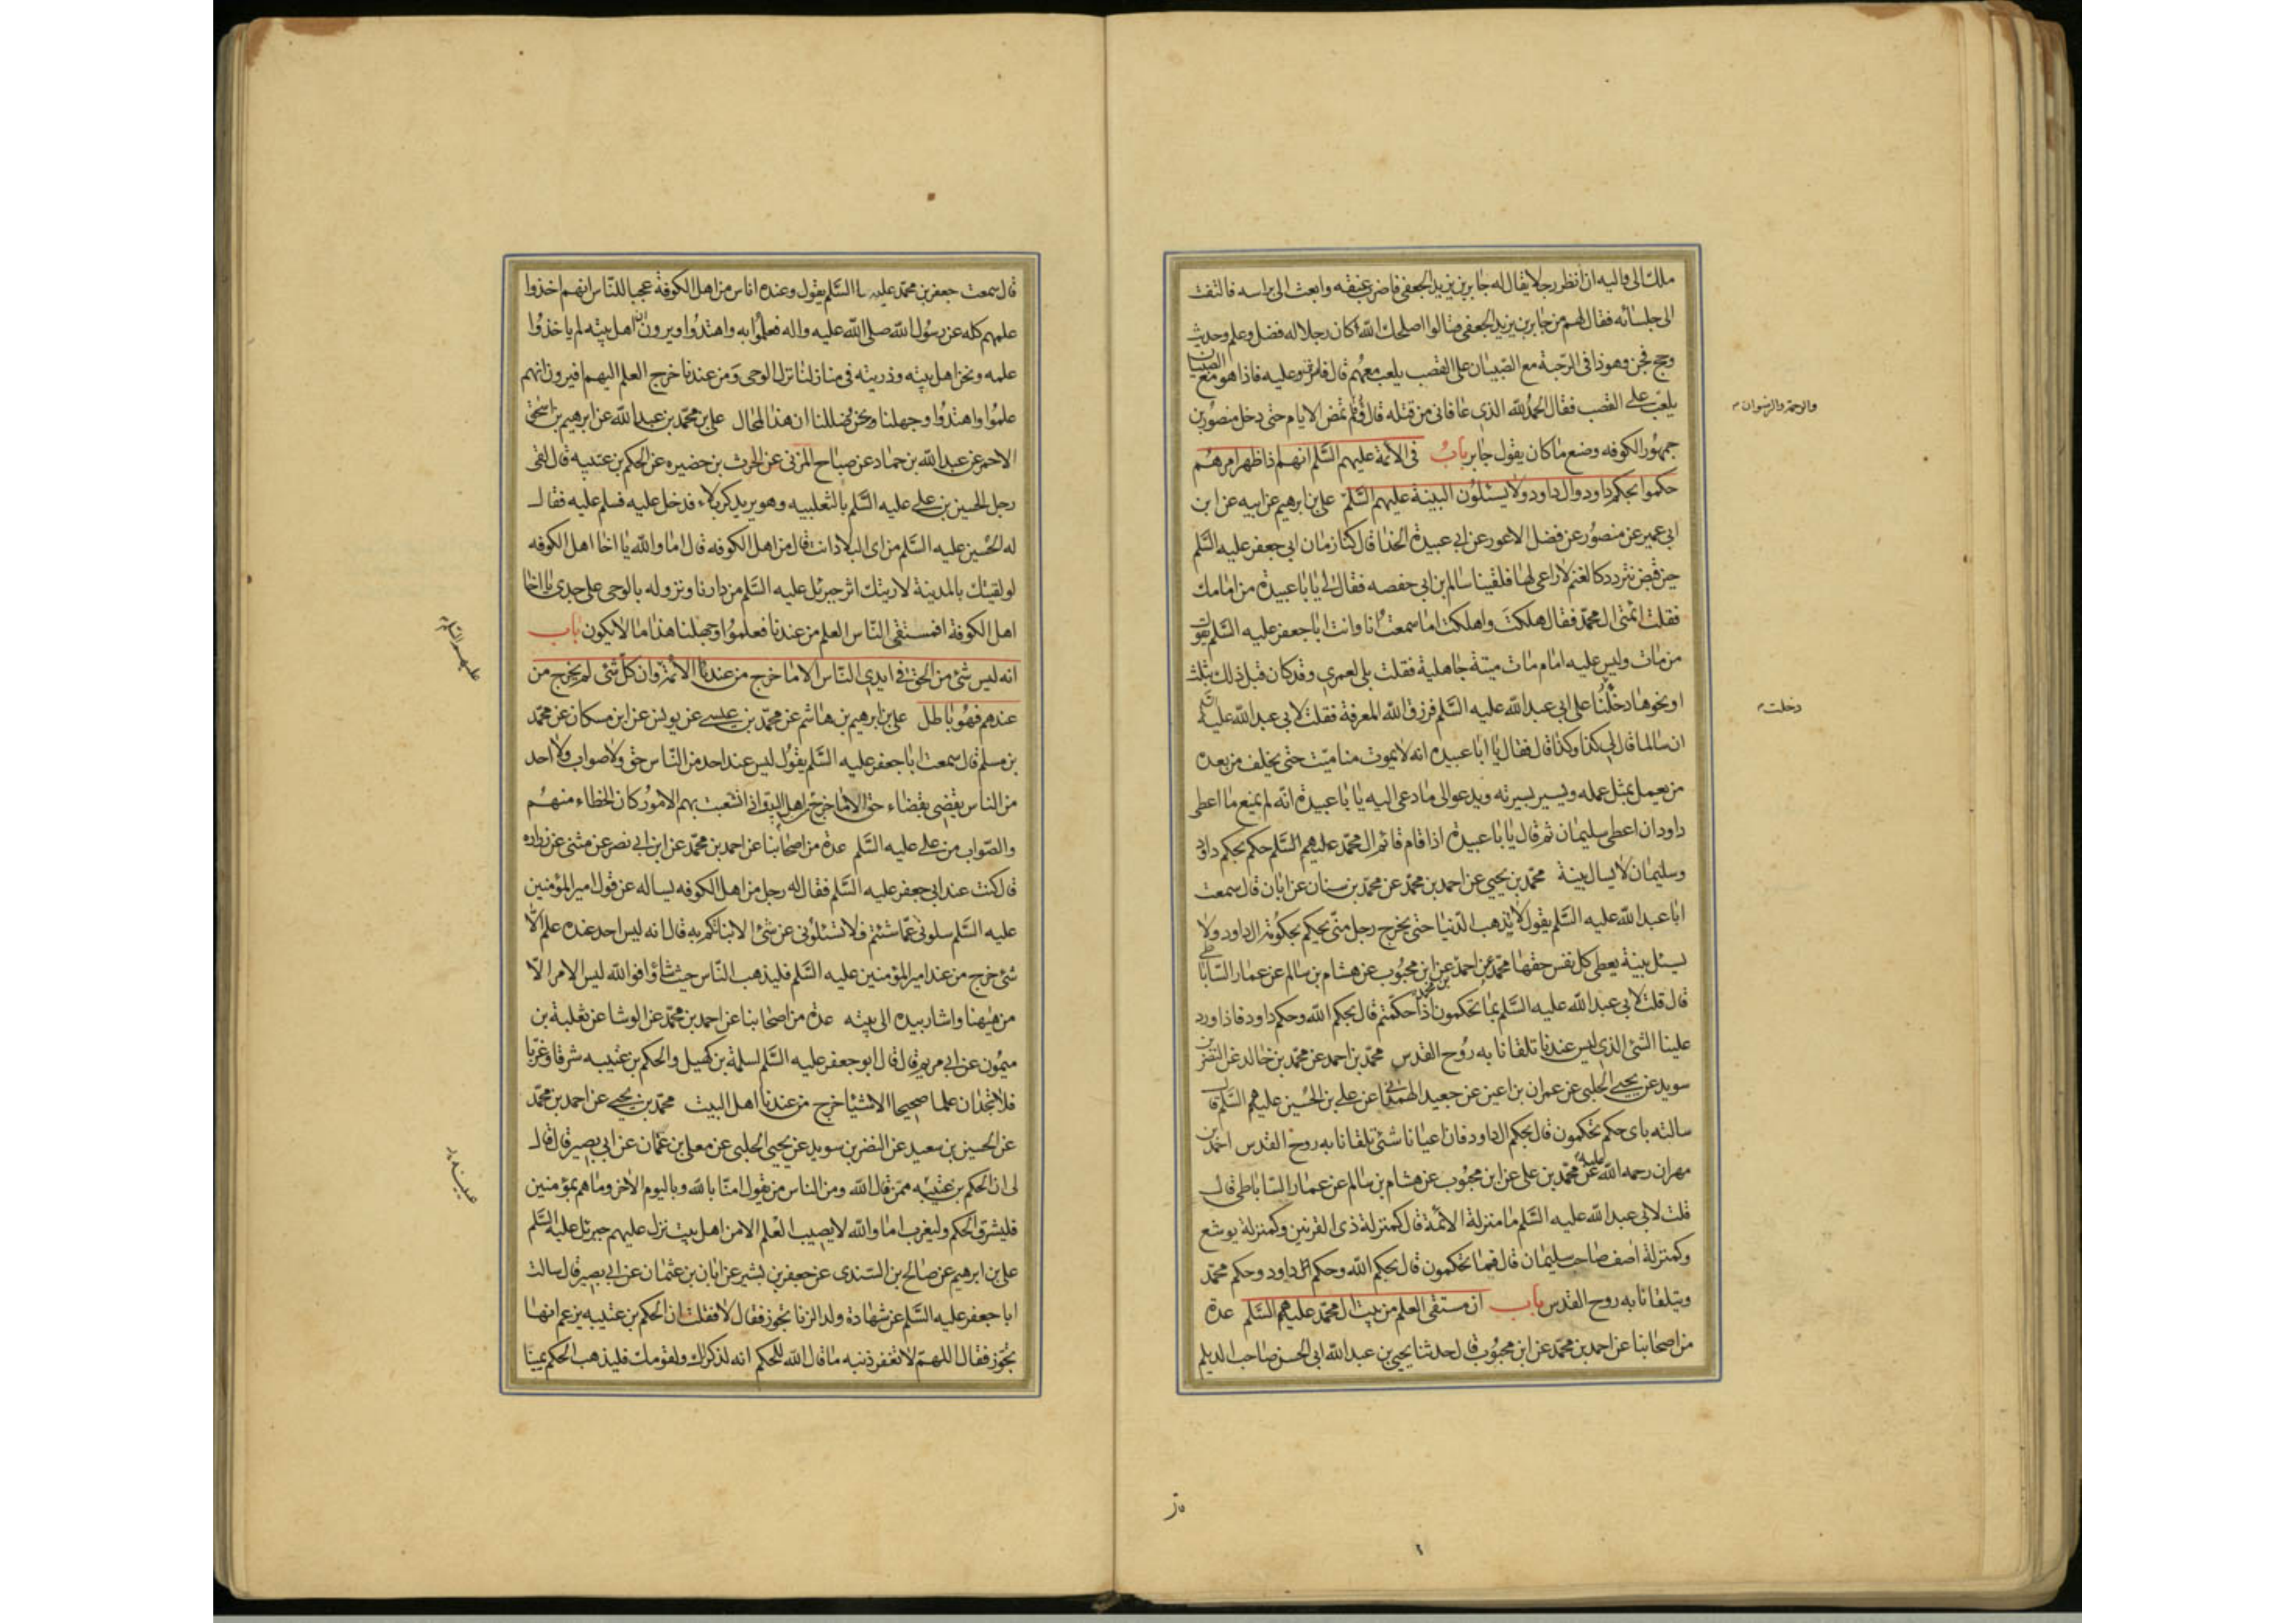 ملك الى واليه ان أنظر رجلا يقال له جابر بن يزيد الجعفى فاضرب عنقه وابعث الى براسه فالتفت
الى جلسائه فقال لهم من جابر بن يزيد الجعفى قالوا اصلحك الله كان رجلا له فضل وعلم وحديث
وحج فجن وهو ذا فى الرحبة مع الصبيان على القصب يلعب معهم قال فاشرف عليه فاذا هو مع الصبيان
يلعب على القصب فقال الحمد لله الذى عافانى من قتله قال ولم تمض الايام حتى دخل منصور بن
جمهور الكوفه وضع ما كان يقول جابر باب فى الأئمة عليهم السّلم انهم اذا ظهر امرهم
حكموا بحكم داود وال داود ولا يسئلون البينة عليهم السّلم على بن ابرهيم عن ابيه عن ابن
ابى عمير عن منصور عن فضل الاعور عن ابى عبيدة الحذا قال كنا زمان ابى جعفر عليه السّلم
حين قبض نتردد كالغنم لا راعى لها فلقينا سالم بن ابى حفصه فقال لى يا با عبيدة من امامك
فقلت ائمتى ال محمد فقال هلكت واهلكت اما سمعت انا وانت ابا جعفر عليه السّلم يقول
من مات وليس عليه امام مات ميتة جاهلية فقلت بلى لعمرى وقد كان قبل ذلك بثلث
او نحوها دخلنا على ابى عبد الله عليه السّلم فرزق الله المعرفة فقلت لابى عبد الله عليه السّلم
ان سالما قال لى كذا وكذا قال فقال يا ابا عبيده انه لا يموت منا ميّت حتى يخلف من بعده
من يعمل بمثل عمله ويسير بسيرته ويدعو الى ما دعى اليه يا با عبيدة انّه لم يمنع ما اعطى
داود ان اعطى سليمان ثم قال يا با عبيدة اذا قام قائم ال محمد عليهم السّلم حكم بحكم داود
وسليمان لا يسال بينة محمّد بن يحيى عن احمد بن محمّد عن محمّد بن سنان عن ابان قال سمعت
ابا عبد الله عليه السّلم يقول لا يذهب الدّنيا حتى يخرج رجل منّى يحكم بحكومة ال داود ولا
يسئل بينة يعطى كل نفس حقها محمّد عن احمد بن محمد عن ابن محبوب عن هشام بن سالم عن عمار الساباطى
قال قلت لابى عبد الله عليه السّلم بما تحكمون اذا حكمتم قال بحكم الله وحكم داود فاذا ورد
علينا الشئ الذى ليس عندنا تلقانا به روح القدس محمّد بن احمد عن محمّد بن خالد عن النضر بن
سويد عن يحيى الحلبى عن عمران بن اعين عن جعيد الهمدانى عن على بن الحسين عليهم السّلم قال
سالته باى حكم تحكمون قال بحكم ال داود فان اعيانا شئ تلقانا به روح القدس احمد بن
مهران رحمه الله عليه عن محمّد بن على عن ابن محبوب عن هشام بن سالم عن عمار الساباطى قال
قلت لابى عبد الله عليه السّلم ما منزلة الأئمّة قال كمنزلة ذى القرنين وكمنزلة يوشع
وكمنزلة اصف صاحب سليمان قال فبما تحكمون قال بحكم الله وحكم ال داود وحكم محمّد
ويتلقانا به روح القدس باب ان مستقى العلم من بيت ال محمّد عليهم السّلم عدة
من اصحابنا عن احمد بن محمّد عن ابن محبوب قال حدثنا يحيى بن عبد الله ابى الحسن صاحب الديلم
والرحمة والرضوان
دخلت
قال سمعت جعفر بن محمّد عليهما السّلم يقول وعنده اناس من اهل الكوفة عجبا للنّاس انهم اخذوا
علمهم كله عن رسول الله صلى الله عليه واله فعملوا به واهتدوا ويرون ان اهل بيته لم ياخذوا
علمه ونحن اهل بيته وذريته فى منازلنا نزل الوحى ومن عندنا خرج العلم اليهم فيرون انهم
علموا واهتدوا وجهلنا ونحن ضللنا ان هذا لمحال على بن محمّد بن عبد الله عن ابرهيم بن اسحق
الاحمر عن عبد الله بن حماد عن صباح المزنى عن الحرث بن حضيره عن الحكم بن عتيبه قال لقى
رجل الحسين بن على عليه السّلم بالثعلبيه وهو يريد كربلاء فدخل عليه فسلم عليه فقال
له الحسين عليه السّلم من اى البلاد انت قال من اهل الكوفه قال اما والله يا اخا اهل الكوفه
لو لقيتك بالمدينة لاريتك اثر جبرئل عليه السّلم من دارنا ونزوله بالوحى على جدى يا اخا
اهل الكوفة افمستقى النّاس العلم من عندنا فعلموا وجهلنا هذا ما لا يكون باب
انه ليس شئ من الحق فى ايدى النّاس الا ما خرج من عندنا الأئمة وان كل شئ لم يخرج من
عندهم فهو باطل على بن ابرهيم بن هاشم عن محمّد بن عيسى عن يونس عن ابن مسكان عن محمّد
بن مسلم قال سمعت ابا جعفر عليه السّلم يقول ليس عند احد من النّاس حق ولا صواب ولا احد
من الناس يقضى بقضاء حق الا ما خرج من اهل البيت واذا انشعبت بهم الامور كان الخطاء منهم
والصّواب من على عليه السّلم عدة من اصحابنا عن احمد بن محمّد عن ابن ابى نصر عن مثنى عن زراره
قال كنت عند ابى جعفر عليه السّلم فقال له رجل من اهل الكوفه يساله عن قول امير المؤمنين
عليه السّلم سلونى عمّا شئتم فلا تسئلونى عن شئ الا انبأتكم به قال انه ليس احد عنده علم الّا
شئ خرج من عند امير المؤمنين عليه السّلم فليذهب النّاس حيث شاؤا فوالله ليس الامر الّا
من هيهنا واشار بيده الى بيته عدة من اصحابنا عن احمد بن محمّد عن الوشا عن ثعلبة بن
ميمون عن ابى مريم قال قال ابو جعفر عليه السّلم لسلمة بن كهيل والحكم بن عتيبه شرقا وغرّبا
فلا تجدان علما صحيحا الا شيئا خرج من عندنا اهل البيت محمّد بن يحيى عن احمد بن محمّد
عن الحسين بن سعيد عن النضر بن سويد عن يحيى الحلبى عن معلى بن عثمان عن ابى بصير قال قال
لى ان الحكم بن عتيبه ممن قال الله ومن الناس من يقول امنّا بالله وباليوم الاخر وما هم بمؤمنين
فليشرق الحكم وليغرب اما والله لا يصيب العلم الا من اهل بيت نزل عليهم جبرئل عليه السّلم
على بن ابراهيم عن صالح بن السندى عن جعفر بن بشير عن ابان بن عثمان عن ابى بصير قال سالت
ابا جعفر عليه السّلم عن شهادة ولد الزنا تجوز فقال لا فقلت ان الحكم بن عتيبه يزعم انها
تجوز فقال اللهمّ لا تغفر ذنبه ما قال الله للحكم انه لذكر لك ولقومك فليذهب الحكم يمينا
عليهم السّلم
عيينه